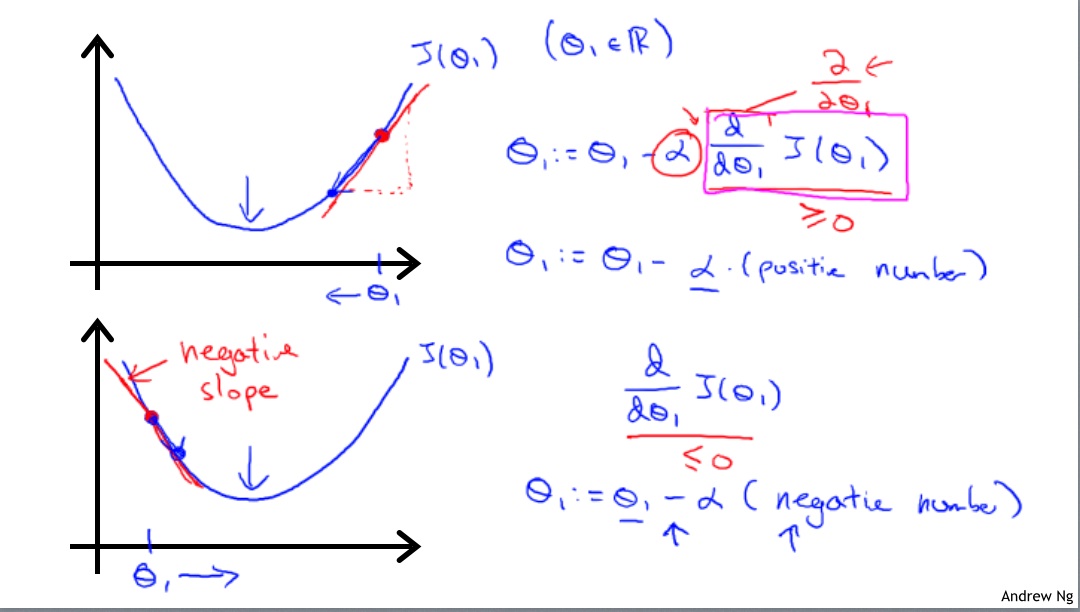 J(θ₁) (θ₁ ∈ ℝ)
∂/∂θ₁ ←
θ₁ := θ₁ - α d/dθ₁ J(θ₁)
≥ 0
θ₁ := θ₁ - α · (positie number)
← θ₁
negative
slope
J(θ₁)
d/dθ₁ J(θ₁)
≤ 0
θ₁ := θ₁ - α (negatie number)
θ₁ →
Andrew Ng